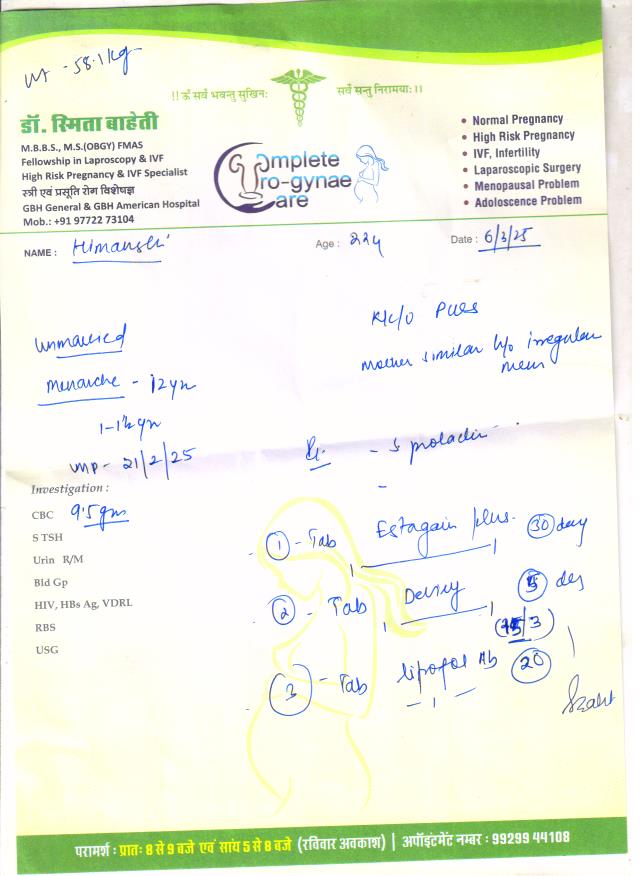 wt - 58.1 kg
!! ॐ सर्वे भवन्तु सुखिनः सर्वे सन्तु निरामयाः ।।
डॉ. स्मिता बाहेती
M.B.B.S., M.S.(OBGY) FMAS
Fellowship in Laproscopy & IVF
High Risk Pregnancy & IVF Specialist
स्त्री एवं प्रसूति रोग विशेषज्ञ
GBH General & GBH American Hospital
Mob.: +91 97722 73104
Complete
Uro-gynae
Care
• Normal Pregnancy
• High Risk Pregnancy
• IVF, Infertility
• Laparoscopic Surgery
• Menopausal Problem
• Adoloscence Problem
NAME : Himanshi Age : 22y Date : 6/3/25
K/c/o
Mother similar h/o irregular
unmarried
Menarche - 12yr
LMP - 21/2/25
S prolactin
Investigation :
CBC 9.5gm
S TSH
Urin R/M
Bld Gp
HIV, HBs Ag, VDRL
RBS
USG
① - Tab Estagain plus. 30 day
② - Tab 5
③ - Tab 20
परामर्श : प्रातः 8 से 9 बजे एवं सांय 5 से 8 बजे (रविवार अवकाश) | अपॉइंटमेंट नम्बर : 99299 44108